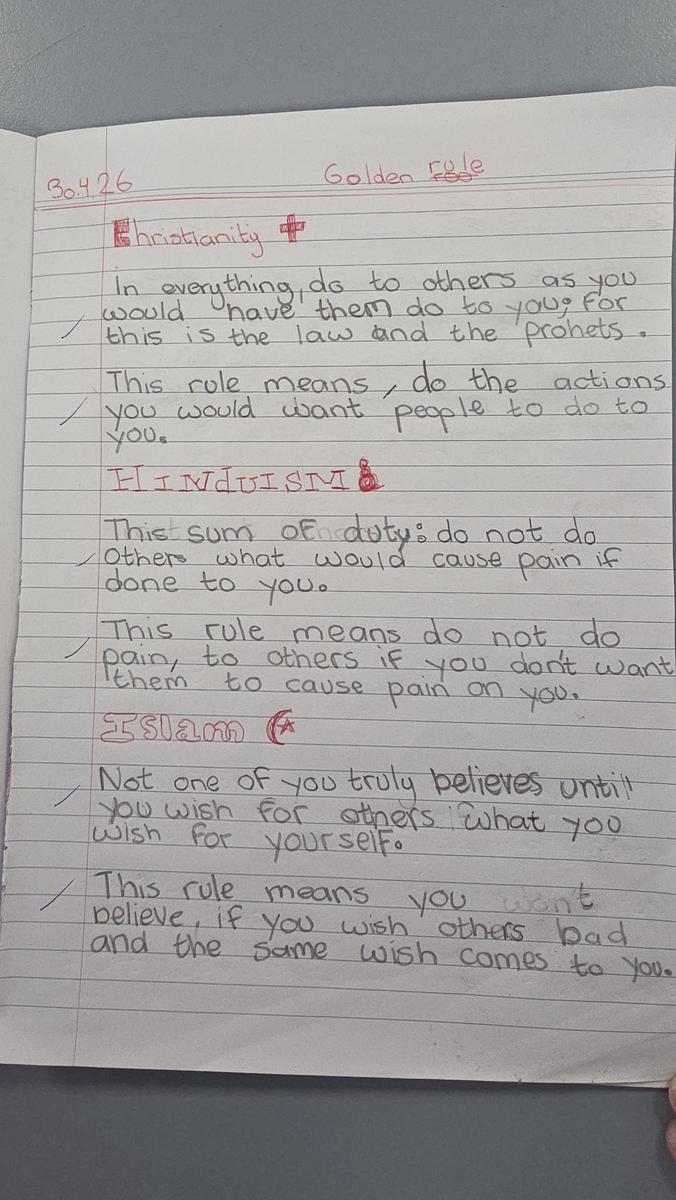 30.4.26 Golden rule
Christianity
In everything, do to others as you
would have them do to you; for
this is the law and the prohets.
This rule means, do the actions
you would want people to do to
you.
HINdUISM
This sum of duty: do not do
Others what would cause pain if
done to you.
This rule means do not do
pain, to others if you don't want
them to cause pain on you.
Islam
Not one of you truly believes until
you wish for others what you
wish for yourself.
This rule means you want
believe, if you wish others bad
and the same wish comes to you.